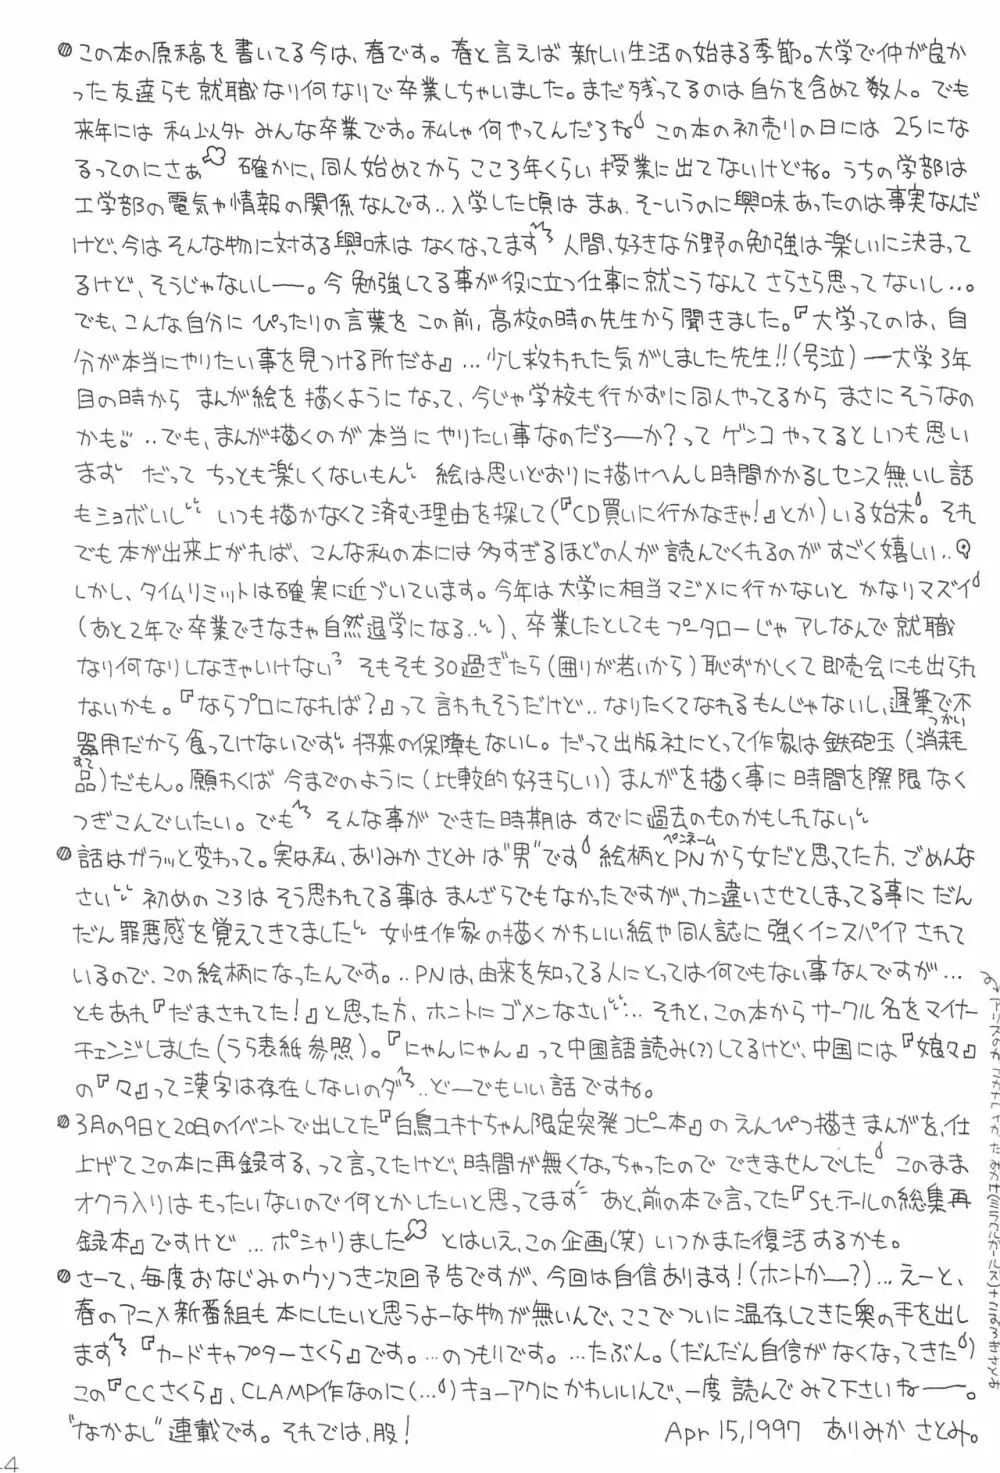 この本の原稿を書いてる今は、春です。春と言えば新しい生活の始まる季節。大学で仲が良か
った友達らも就職なり何なりで卒業しちゃいました。まだ残ってるのは自分を含めて数人。でも
来年には私以外みんな卒業です。私しゃ何やってんだろね この本の初売りの日には25にな
るってのにさぁ 確かに、同人始めてからここ3年くらい授業に出てないけどね。うちの学部は
工学部の電気や情報の関係なんです..入学した頃はまぁ、そーいうのに興味あったのは事実なんだ
けど、今はそんな物に対する興味はなくなってます 人間、好きな分野の勉強は楽しいに決まって
るけど、そうじゃないしー。今勉強してる事が役に立つ仕事に就こうなんてさらさら思ってないし...。
でも、こんな自分にぴったりの言葉をこの前、高校の時の先生から聞きました。『大学ってのは、自
分が本当にやりたい事を見つける所だよ』...少し救われた気がしました先生!!(号泣) ー大学3年
目の時からまんが絵を描くようになって、今じゃ学校も行かずに同人やってるからまさにそうなの
かも ..でも、まんが描くのが本当にやりたい事なのだろーか?ってゲンコやってるといつも思い
ます だってちっとも楽しくないもん 絵は思いどおりに描けへんし時間かかるしセンス無いし話
もショボいし いつも描かなくて済む理由を探して(『CD買いに行かなきゃ!』とか)いる始末。それ
でも本が出来上がれば、こんな私の本には多すぎるほどの人が読んでくれるのがすごく嬉しい..
しかし、タイムリミットは確実に近づいています。今年は大学に相当マジメに行かないとかなりマズイ
(あと2年で卒業できなきゃ自然退学になる..)、卒業したとしてもプータローじゃアレなんで就職
なり何なりしなきゃいけない そもそも30過ぎたら(囲りが若いから)恥ずかしくて即売会にも出られ
ないかも。『ならプロになれば?』って言われそうだけど..なりたくてなれるもんじゃないし、遅筆で不
器用だから食ってけないです 将来の保障もないし。だって出版社にとって作家は鉄砲玉(消耗
つかい
すて
品)だもん。願わくば今までのように(比較的好きらしい)まんがを描く事に時間を際限なく
つぎこんでいたい。でも そんな事ができた時期はすでに過去のものかもしれない
話はガラッと変わって。実は私、ありみかさとみは"男"です 絵柄とPNから女だと思ってた方、ごめんな
ペンネーム
さい 初めのころはそう思われてる事はまんざらでもなかったですが、カン違いさせてしまってる事にだん
だん罪悪感を覚えてきてました 女性作家の描くかわいい絵や同人誌に強くインスパイアされて
いるので、この絵柄になったんです。..PNは、由来を知ってる人にとっては何でもない事なんですが...
ともあれ『だまされてた!』と思った方、ホントにゴメンなさい... それと、この本からサークル名をマイナー
チェンジしました(うら表紙参照)。『にゃんにゃん』って中国語読み(?)してるけど、中国には『娘々』
の『々』って漢字は存在しないのダ ..どーでもいい話ですね。
3月の9日と20日のイベントで出してた『白鳥ユキナちゃん限定突発コピー本』のえんぴつ描きまんがを、仕
上げてこの本に再録する、って言ってたけど、時間が無くなっちゃったのでできませんでした このまま
オクラ入りはもったいないので何とかしたいと思ってます あと、前の本で言ってた『St.テールの総集再
録本』ですけど...ポシャりました とはいえ、この企画(笑)いつかまた復活するかも。
さーて、毎度おなじみのウソつき次回予告ですが、今回は自信あります!(ホントかー?)...えーと、
春のアニメ新番組も本にしたいと思うよーな物が無いんで、ここでついに温存してきた奥の手を出し
ます 『カードキャプターさくら』です。...のつもりです。...たぶん。(だんだん自信がなくなってきた)
この『CCさくら』、CLAMP作なのに(...)キョーアクにかわいいんで、一度読んでみて下さいねー。
"なかよし"連載です。それでは、股!
Apr 15,1997 ありみか さとみ。